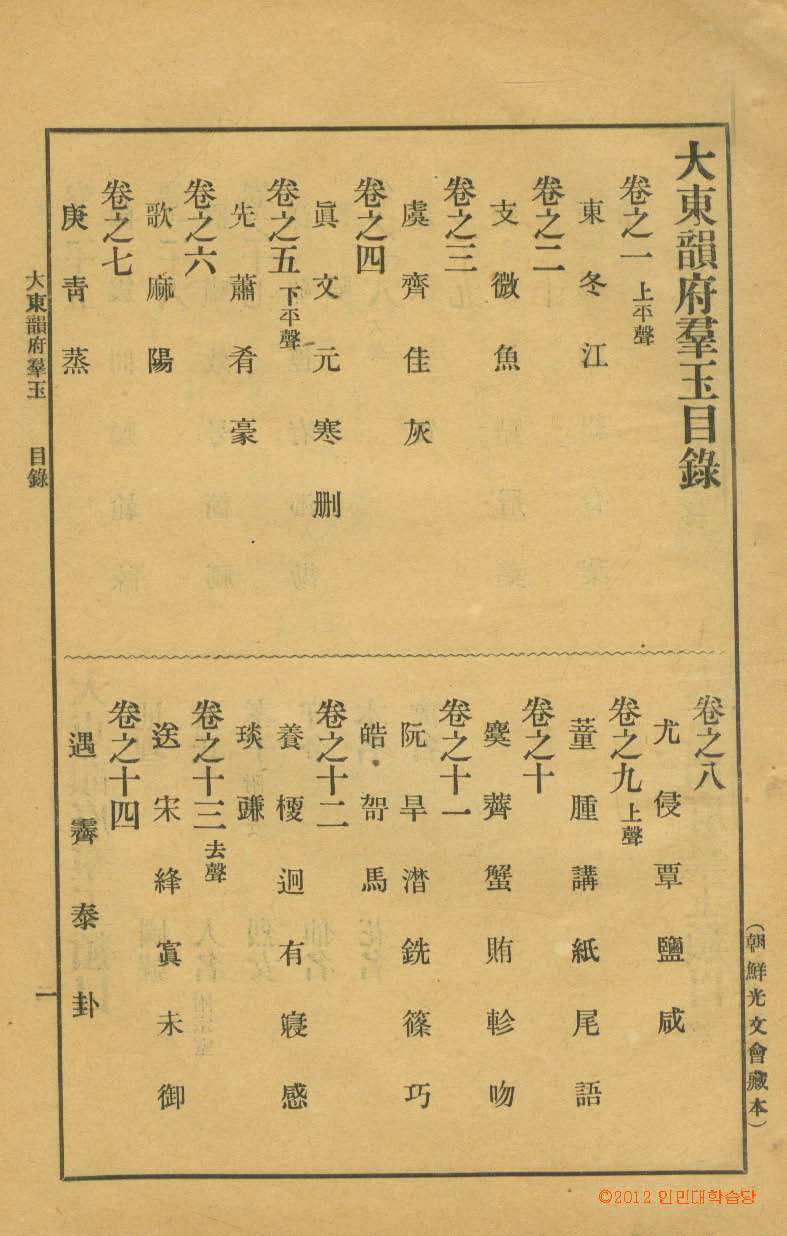 大東韻府羣玉目錄
卷之一 上平聲
東冬江
卷之二
支微魚
卷之三
虞齊佳灰
卷之四
眞文元寒删
卷之五 下平聲
先蕭肴豪
卷之六
歌麻陽
卷之七
庚靑蒸
卷之八
尤侵覃鹽咸
卷之九 上聲
董腫講紙尾語
卷之十
麌薺蟹賄軫吻
卷之十一
阮旱潸銑篠巧
皓哿馬
卷之十二
養梗迥有寑感
琰豏
卷之十三 去聲
送宋絳寘未御
卷之十四
遇霽泰卦
大東韻府羣玉 目錄
一
(朝鮮光文會藏本)
©2012 인민대학습당